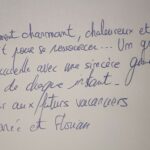 ment charmant, chaleureux et
pour se ressourcer... Un gr
avec une sincère gé
de chaque instant.
aux futurs vacanciers
et Florian